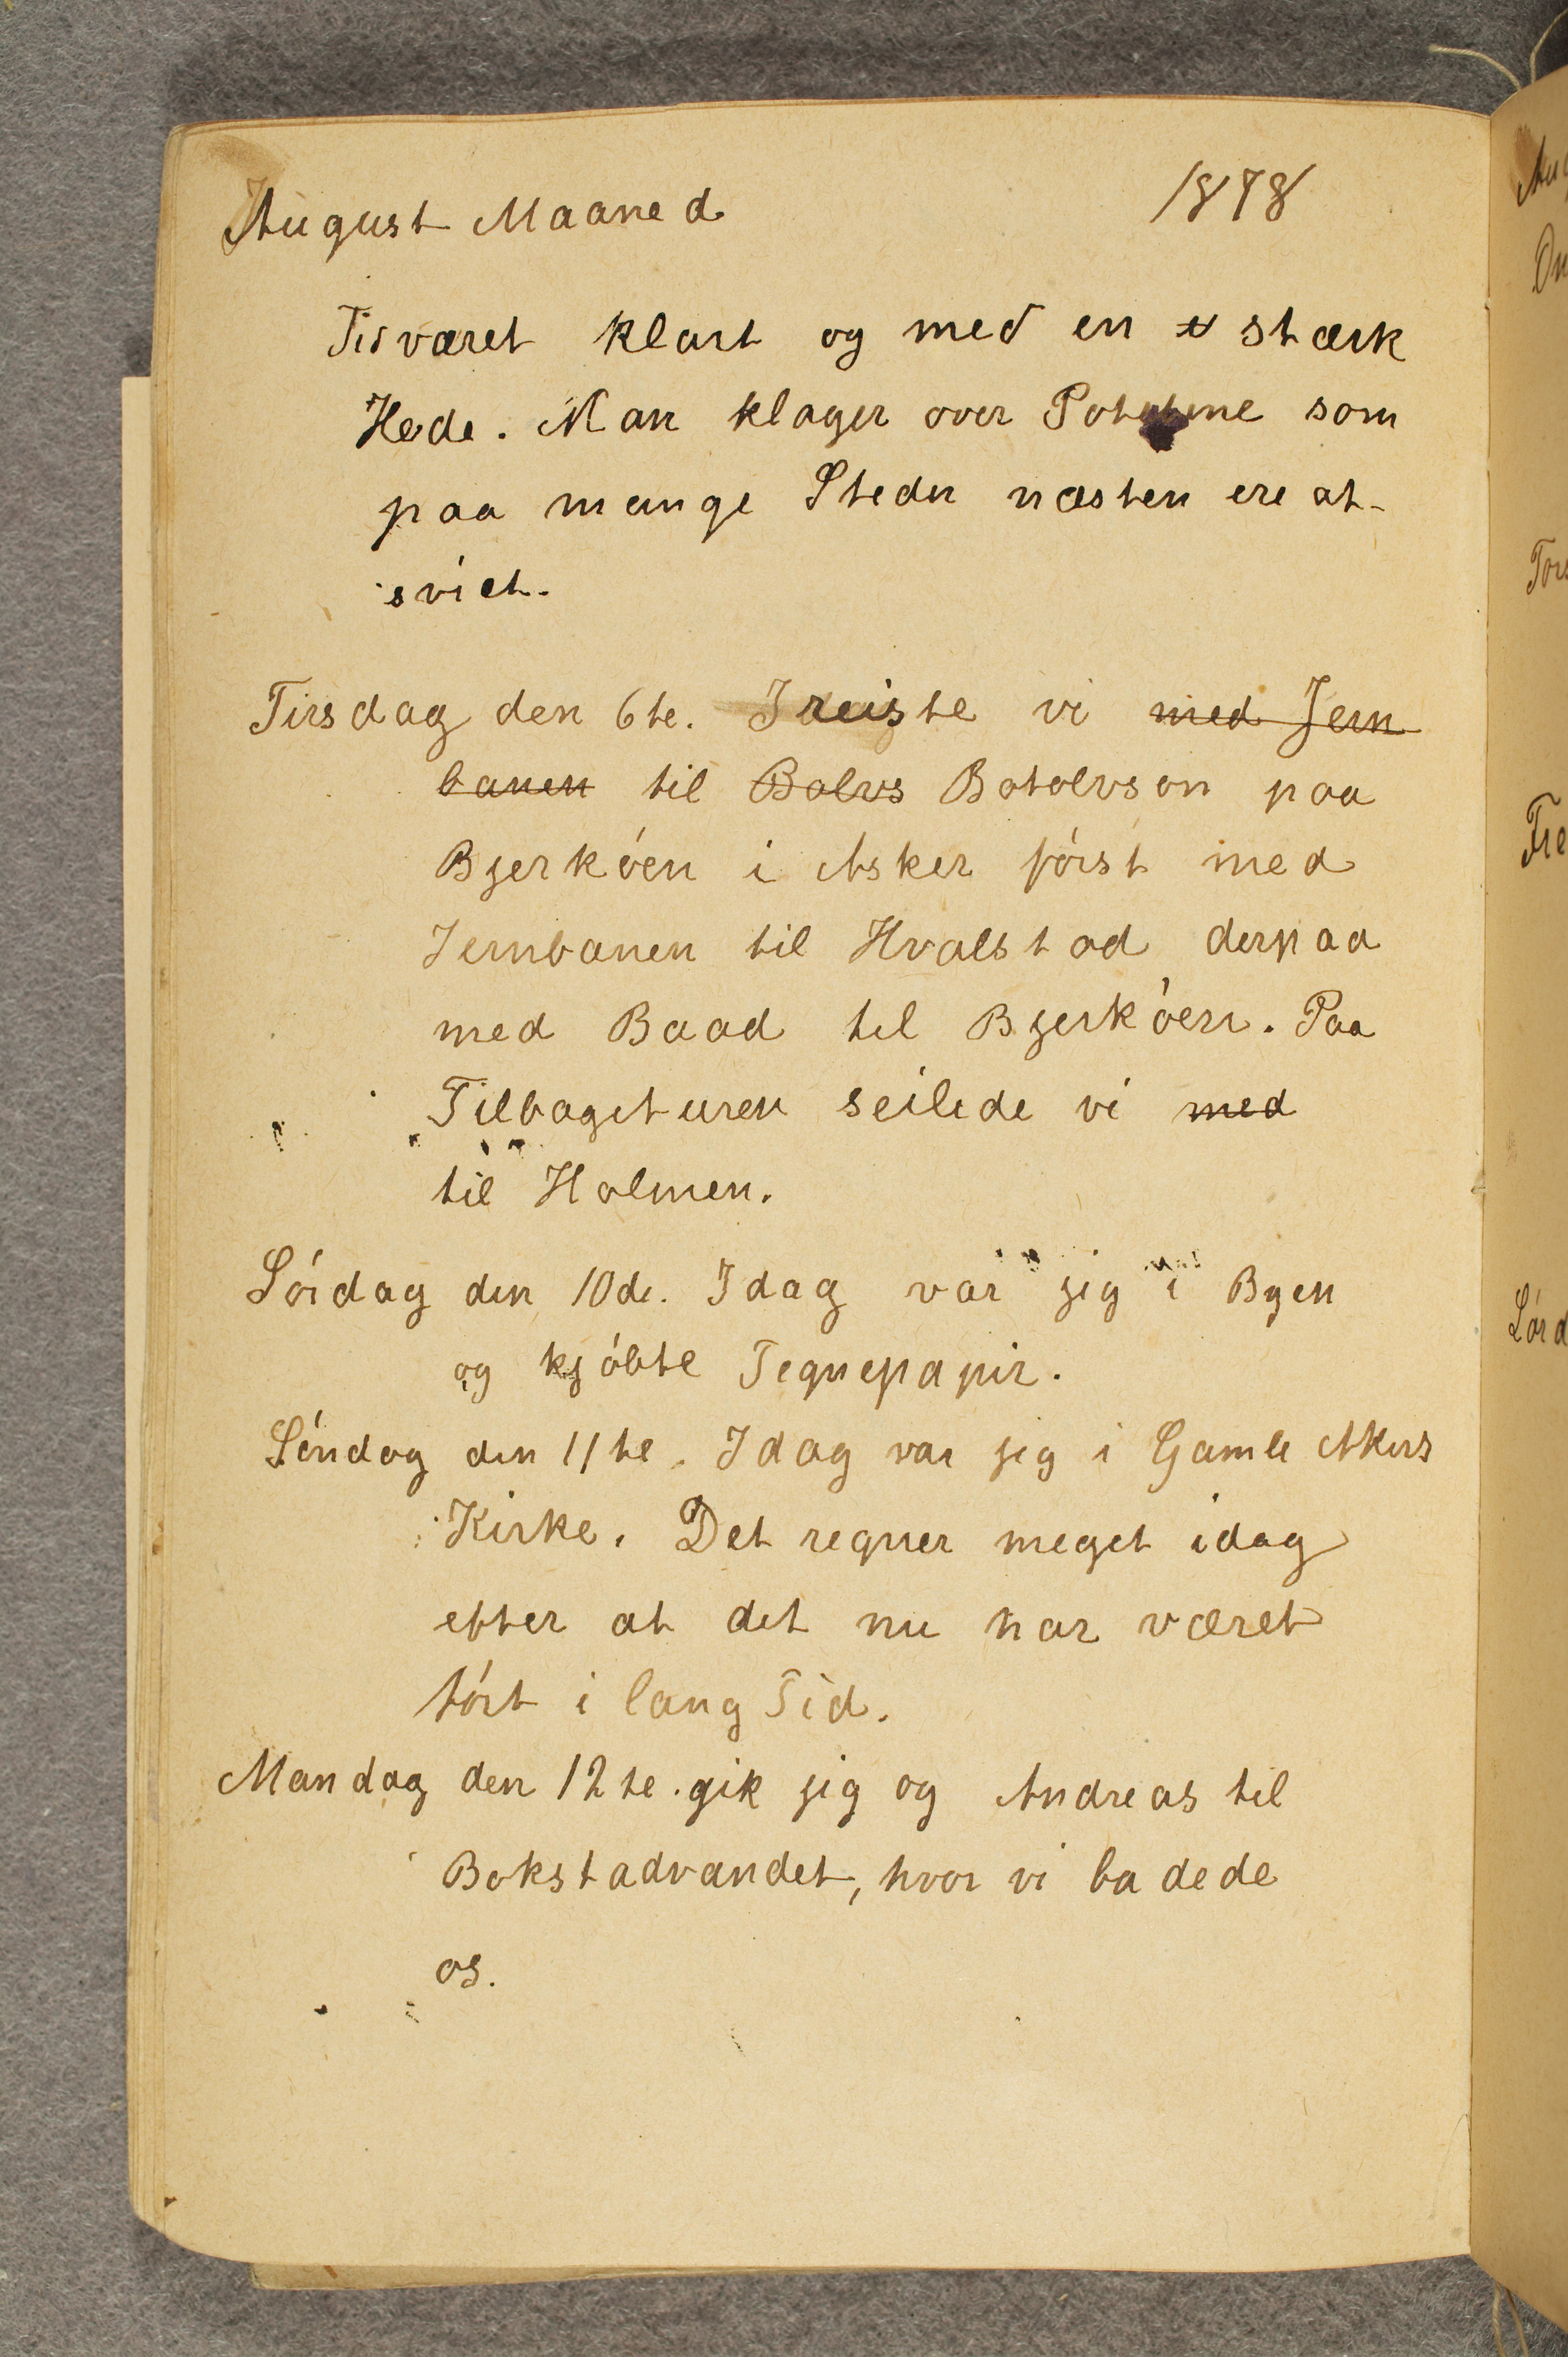 August Maaned 1878
Tid været klart og med en stærk
Hede. Man klager over Poteterne som
paa mange Steder næsten ere at-
sviet.
Tirsdag den 6te. I reiste vi med Jern
banen til Bolvs Botolvson paa
Bjerköen i Asker först med
Jernbanen til Hvalstad derpaa
med Baad til Bjerköen. Paa
Tilbageturen seilede vi med
til Holmen.
Lördag den 10de. Idag var jeg i Byen
og kjöbte Tegnepapir.
Söndag den 11te. Idag var jeg i Gamle Akers
Kirke. Det regner meget idag
efter at det nu har været
tört i lang Tid.
Mandag den 12te. gik jeg og Andreas til
Bokstadvandet, hvor vi badede
os.
Tors
Fre
Lörd